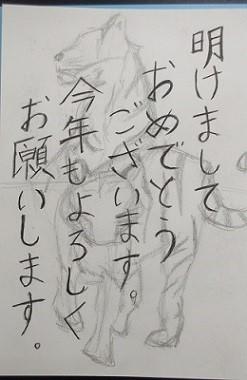 明けまして
おめでとう
ございます。
今年もよろしく
お願いします。